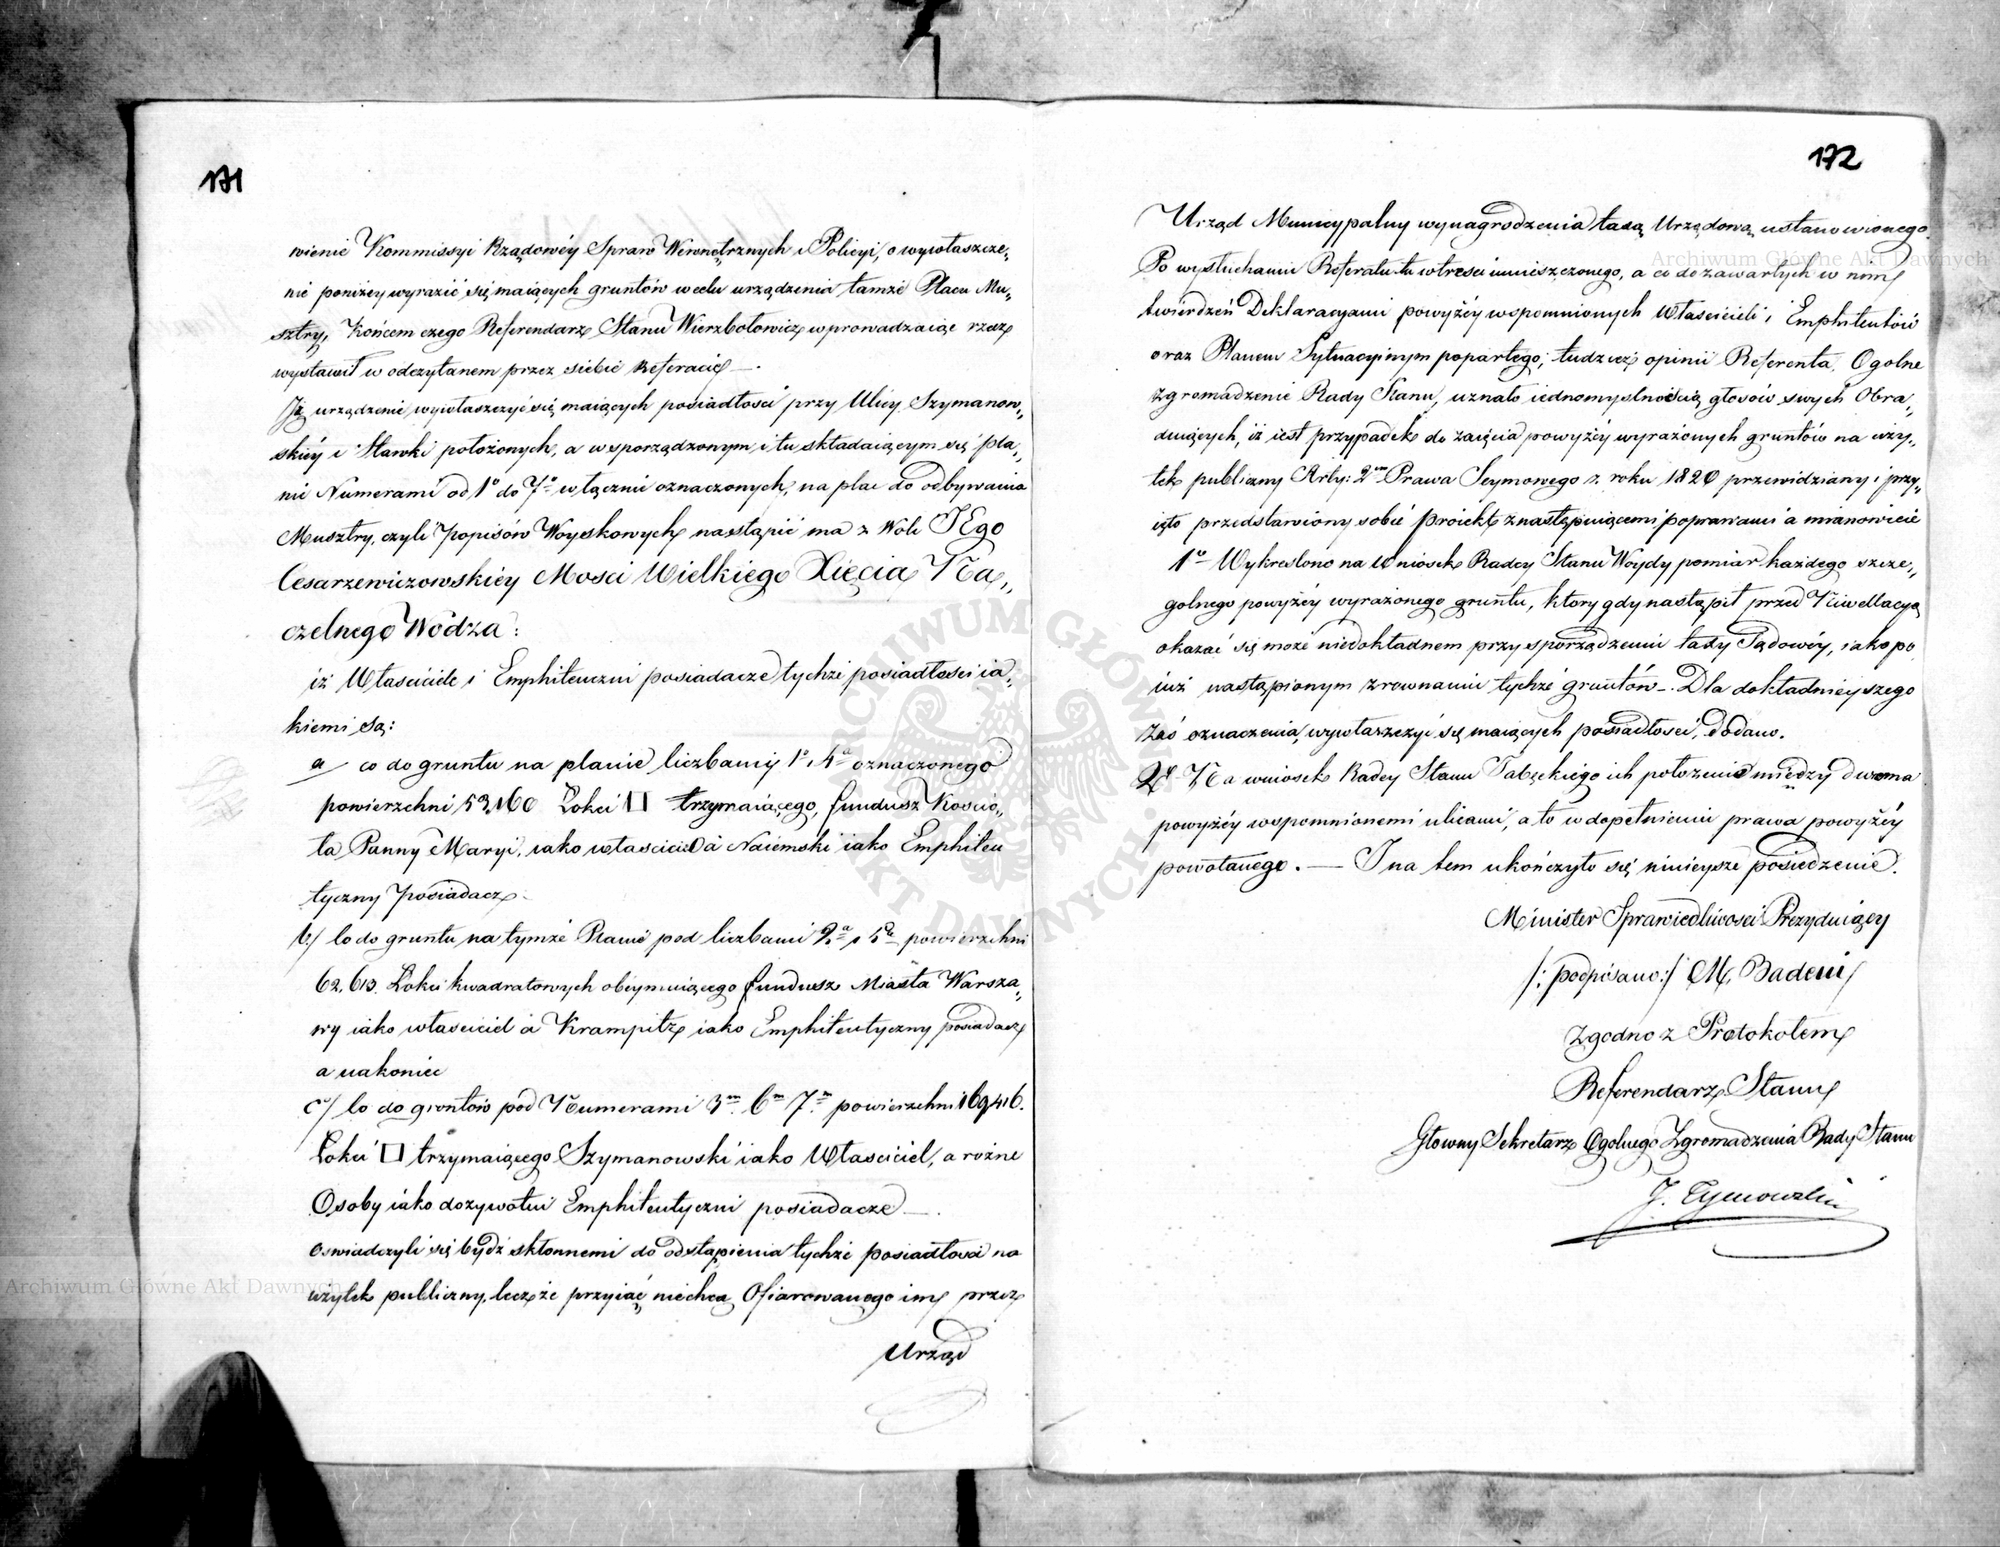 171
wienie Kommissyi Rządowéy Spraw Wewnętrznych i Policyi, o wywłaszcze„
nie poniżey wyrazić się maiących gruntów w celu urządzenia tamże Placu Mu„
sztry, końcem czego Referendarz Stanu Wierzbołowicz wprowadzaiąc rzecz
wystawił w odczytanem przez siebie Referacie —.
Iż urządzenie wywłaszczyć się maiących posiadłości przy Ulicy Szymanow„
skiéy i Stawki położonych, a w sporządzonym i tu składaiącym się pla„
nie Numerami od 1o do 7o włącznie oznaczonych, na plac do odbywania
Musztry, czyli Popisów Woyskowych nastąpić ma z Woli JEgo
Cesarzewiczowskiéy Mosci Wielkiego Xięcia Na„
czelnego Wodza:
iż Własciciele i Emphiteuczni posiadacze tychże posiadłości ia„
kiemi są:
a/ co do gruntu na planie liczbami 1o i 4a oznaczonego
powierzchni 53,160 Łokci □ trzymaiącego, fundusz Kościo„
ła Panny Maryi, iako właściciel a Naiemski iako Emphiteu
tyczny Posiadacz.
b:/ Co do gruntu na tymże Planie pod liczbami 2a i 5a powierzchni
62,613. Łokci kwadratowych obeymuiącego fundusz Miasta Warsza„
wy iako własciciel a Krampitz iako Emphiteutyczny posiadacz
a nakoniec
c:/ Co do gruntów pod Numerami 3m 6m 7m powierzchni 169416.
Łokci □ trzymaiącego Szymanowski iako Własciciel, a rożne
Osoby iako dożywotni Emphiteutyczni posiadacze —.
oswiadczyli się bydź skłonnemi do odstąpienia tychże posiadłości na
użytek publiczny, lecz że przyiąć niechcą Ofiarowanego im przez
Urząd
172
Urząd Municypalny wynagrodzenia taxą Urzędową ustanowionego.
Po wysłuchaniu Referatu tu w treści umieszczonego, a co do zawartych w nim
twierdzeń Deklaracyami powyżéy wspomnionych Włascicieli i Emphiteutów
oraz Planem Sytuacyinym popartego, tudzież opinii Referenta, Ogolne
Zgromadzenie Rady Stanu, uznało iednomyslnością głosów swych Obra„
duiących, iż iest przypadek do zaięcia powyżéy wyrażonych gruntów na uży„
tek publiczny Arty: 2m Prawa Seymowego z roku 1820 przewidziany i przy„
ięto przedstawiony sobie proiekt z następuiącemi poprawami a mianowicie
1o Wykreslono na Wniosek Radcy Stanu Woydy pomiar każdego szcze„
golnego powyżéy wyrażonego gruntu, ktory gdy nastąpił przed Niwellacyą
okazać się może niedokładnem przy sporządzeniu taxy Sądowéy, iako po
iuż nastąpionym zrownaniu tychże gruntów —. Dla dokładnieyszego
zaś oznaczenia, wywłaszczyć się maiących posiadłości, dodano.
2o Na wniosek Radcy Stanu Tabęckiego ich położenie między dwoma
powyżéy wspomnionemi ulicami, a to w dopełnieniu prawa powyżéy
powołanego. — I na tem ukończyło się ninieysze posiedzenie.
Minister Sprawiedliwości Prezyduiący
/: podpisano :/ M. Badeni
Zgodno z Protokołem
Referendarz Stanu
Głowny Sekretarz Ogolnego Zgromadzenia Rady Stanu
J. Tymowski
Archiwum Główne Akt Dawnych
Archiwum Główne Akt Dawnych
ARCHIWUM GŁÓWNE AKT DAWNYCH